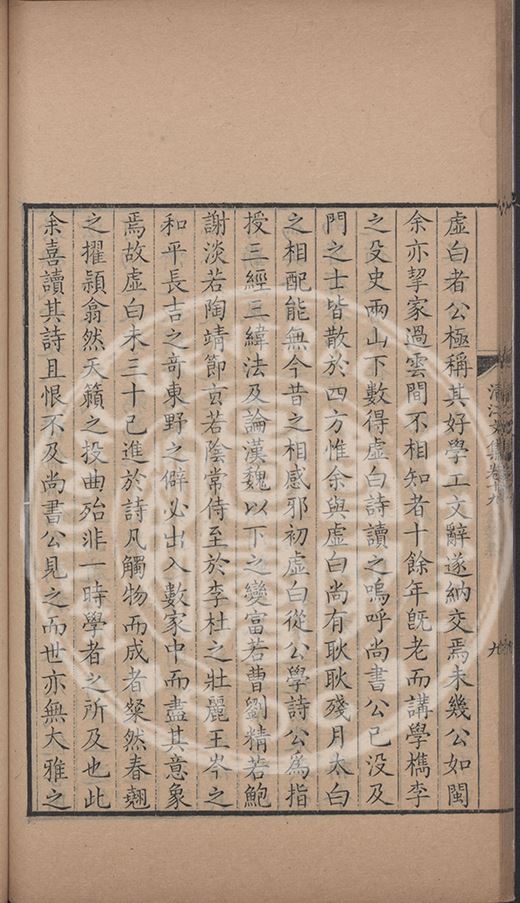 虛白者公極稱其好學工文辭遂納交焉未幾公如閩
余亦挈家過雲間不相知者十餘年旣老而講學檇李
之殳史兩山下數得虛白詩讀之嗚呼尚書公已没及
門之士皆散於四方惟余與虛白尚有耿耿殘月太白
之相配能無今昔之相感邪初虛白從公學詩公為指
授三經三緯法及論漢魏以下之變富若曹劉精若鮑
謝淡若陶靖節玄若陰常侍至於李杜之壯麗王岑之
和平長吉之竒東野之僻必出入數家中而盡其意象
焉故虛白未三十已進於詩凡觸物而成者粲然春翹
之擢頴翕然天籟之投曲殆非一時學者之所及也此
余喜讀其詩且恨不及尚書公見之而世亦無大雅之
清江文集卷
九